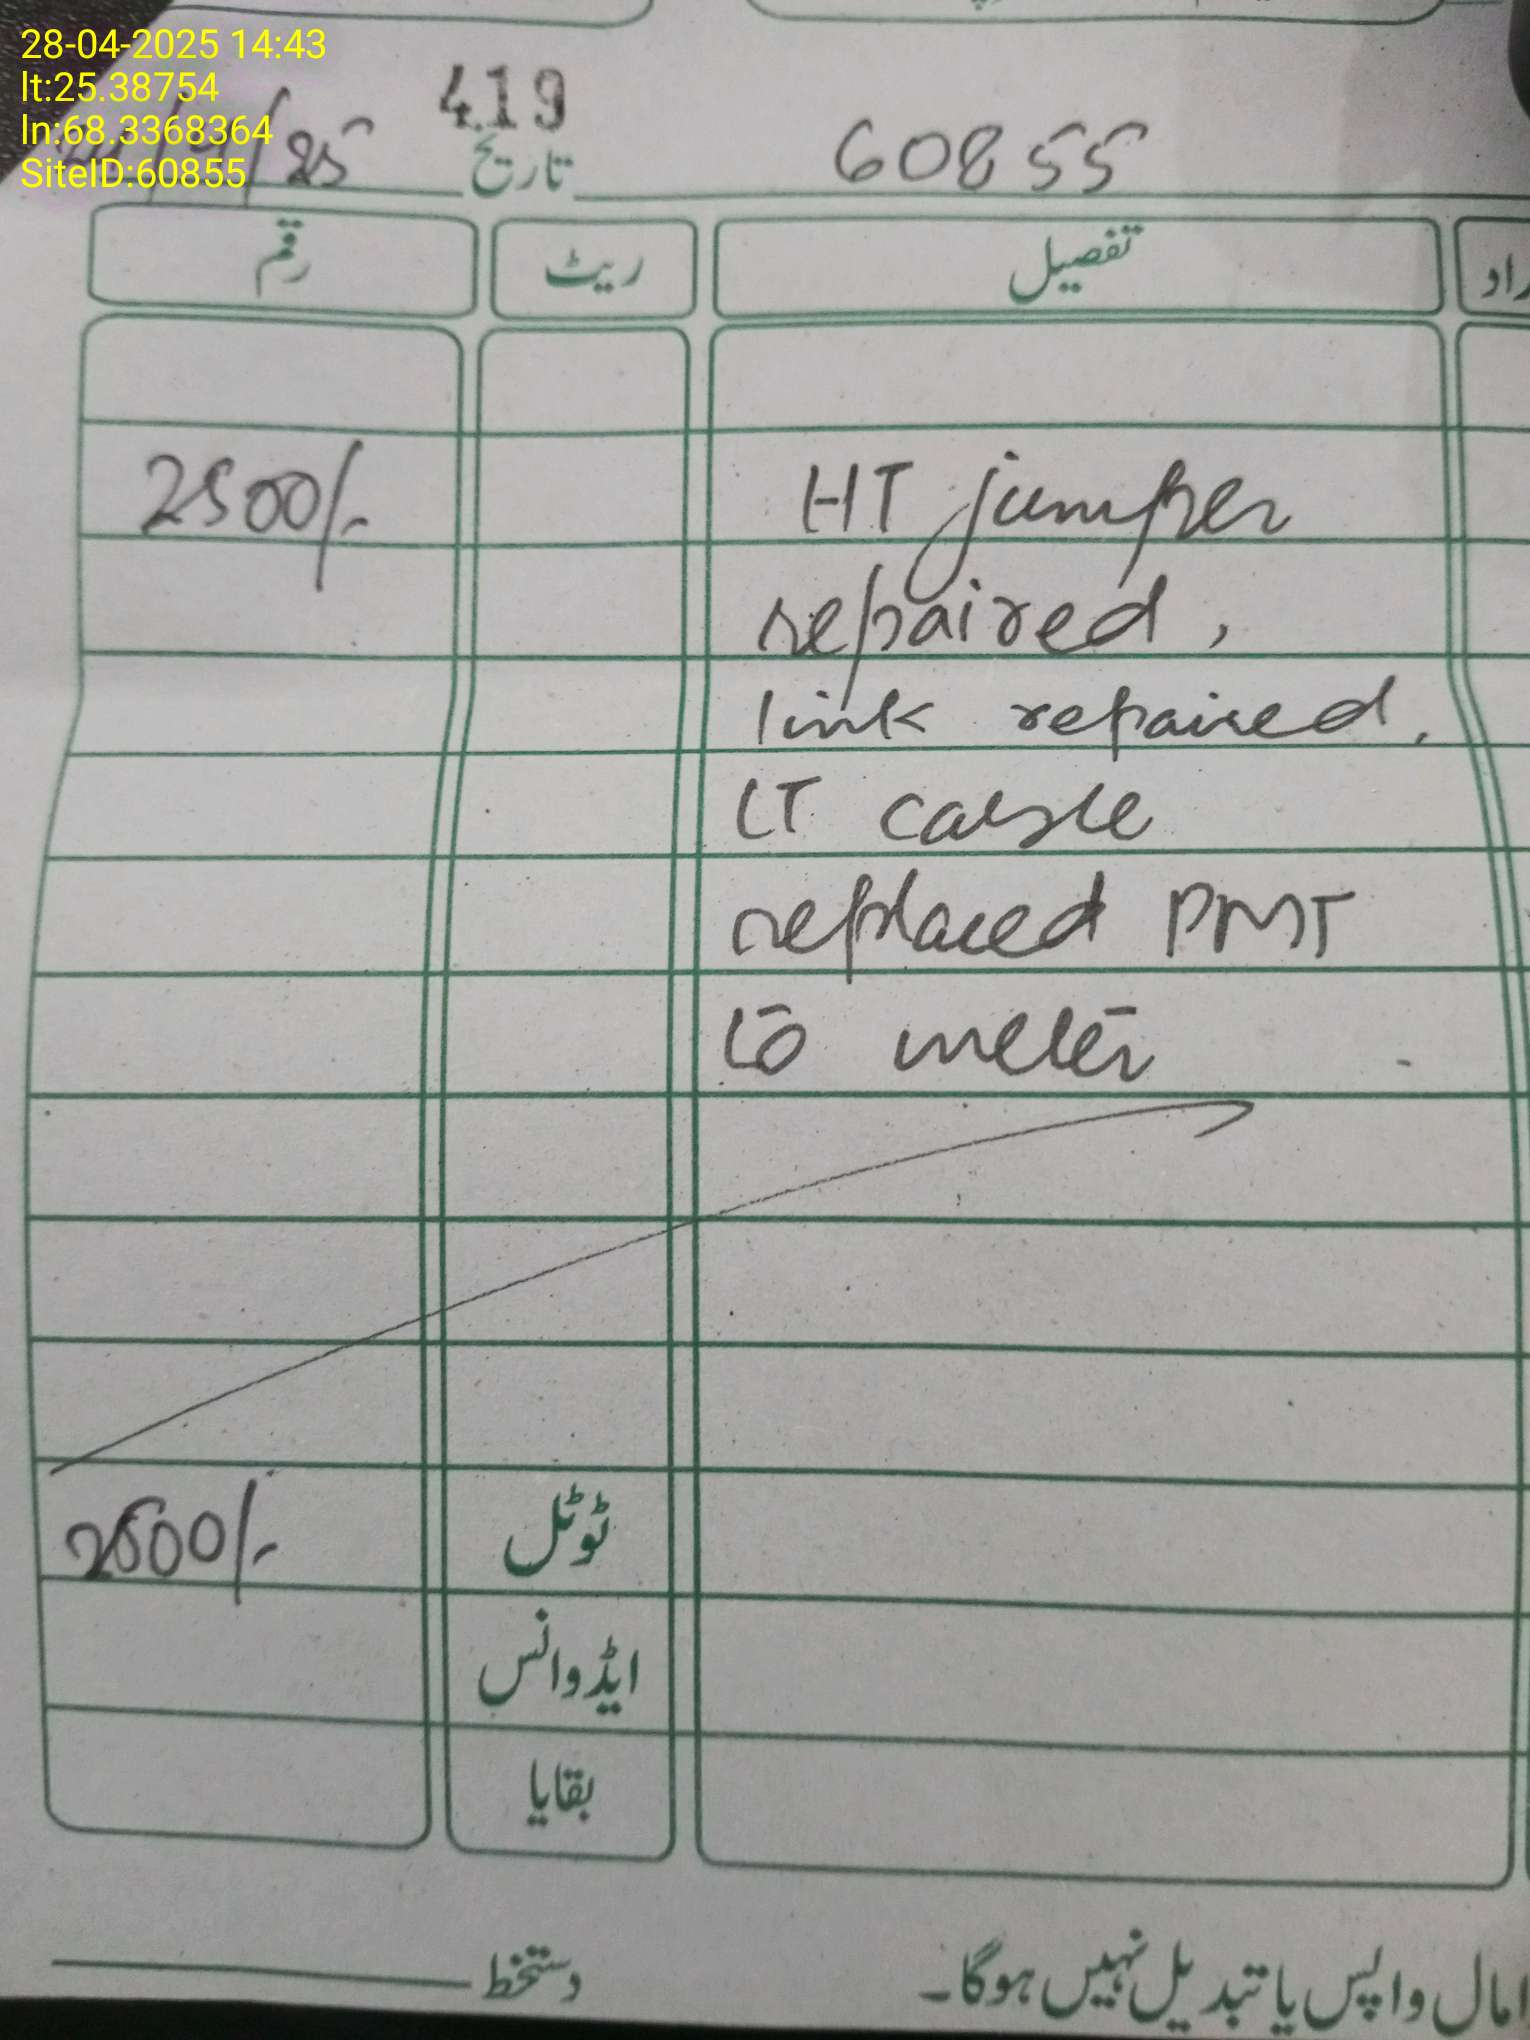 28-04-2025 14:43
lt:25.38754
ln:68.3368364
SiteID:60855
419
60855 تاریخ /25
تفصیل ریٹ رقم
HT jumper 2500/-
repaired,
link repaired,
LT cable
replaced PMT
to meter
ٹوٹل 2500/-
ایڈوانس
بقایا
مال واپس یا تبدیل نہیں ہوگا۔ دستخط